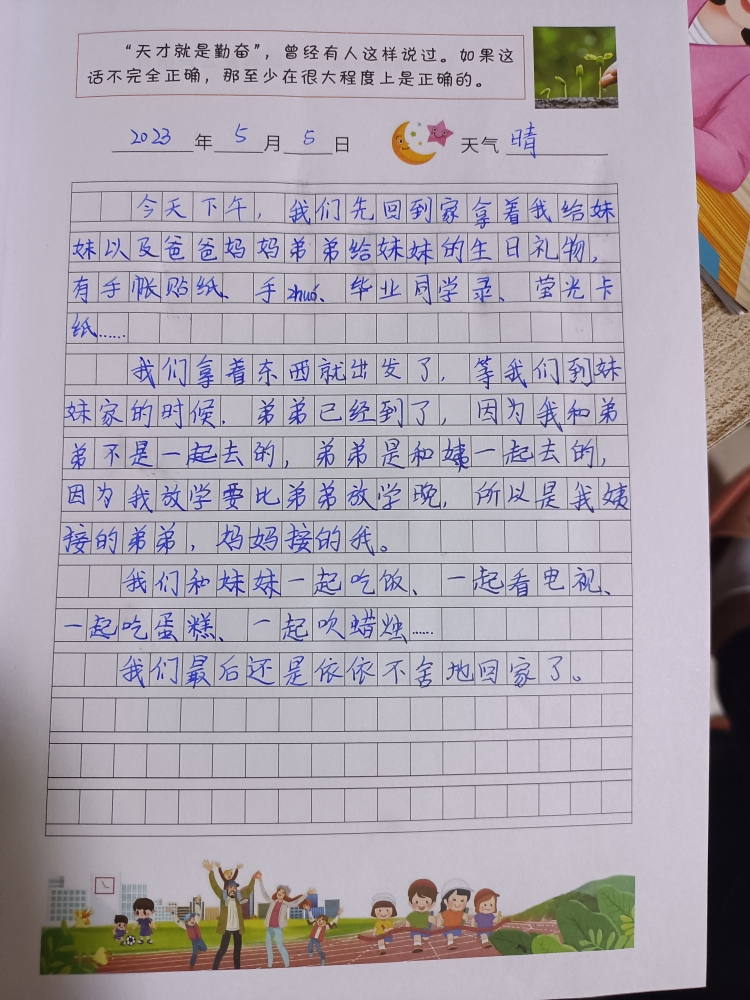 “天才就是勤奋”，曾经有人这样说过。如果这
话不完全正确，那至少在很大程度上是正确的。
2023年5月5日 天气 晴
今天下午，我们先回到家拿着我给妹
妹以及爸爸妈妈弟弟给妹妹的生日礼物，
有手帐贴纸、手zhuó、毕业同学录、萤光卡
纸……
我们拿着东西就出发了，等我们到妹
妹家的时候，弟弟已经到了，因为我和弟
弟不是一起去的，弟弟是和姨一起去的，
因为我放学要比弟弟放学晚，所以是我姨
接的弟弟，妈妈接的我。
我们和妹妹一起吃饭、一起看电视、
一起吃蛋糕、一起吹蜡烛……
我们最后还是依依不舍地回家了。